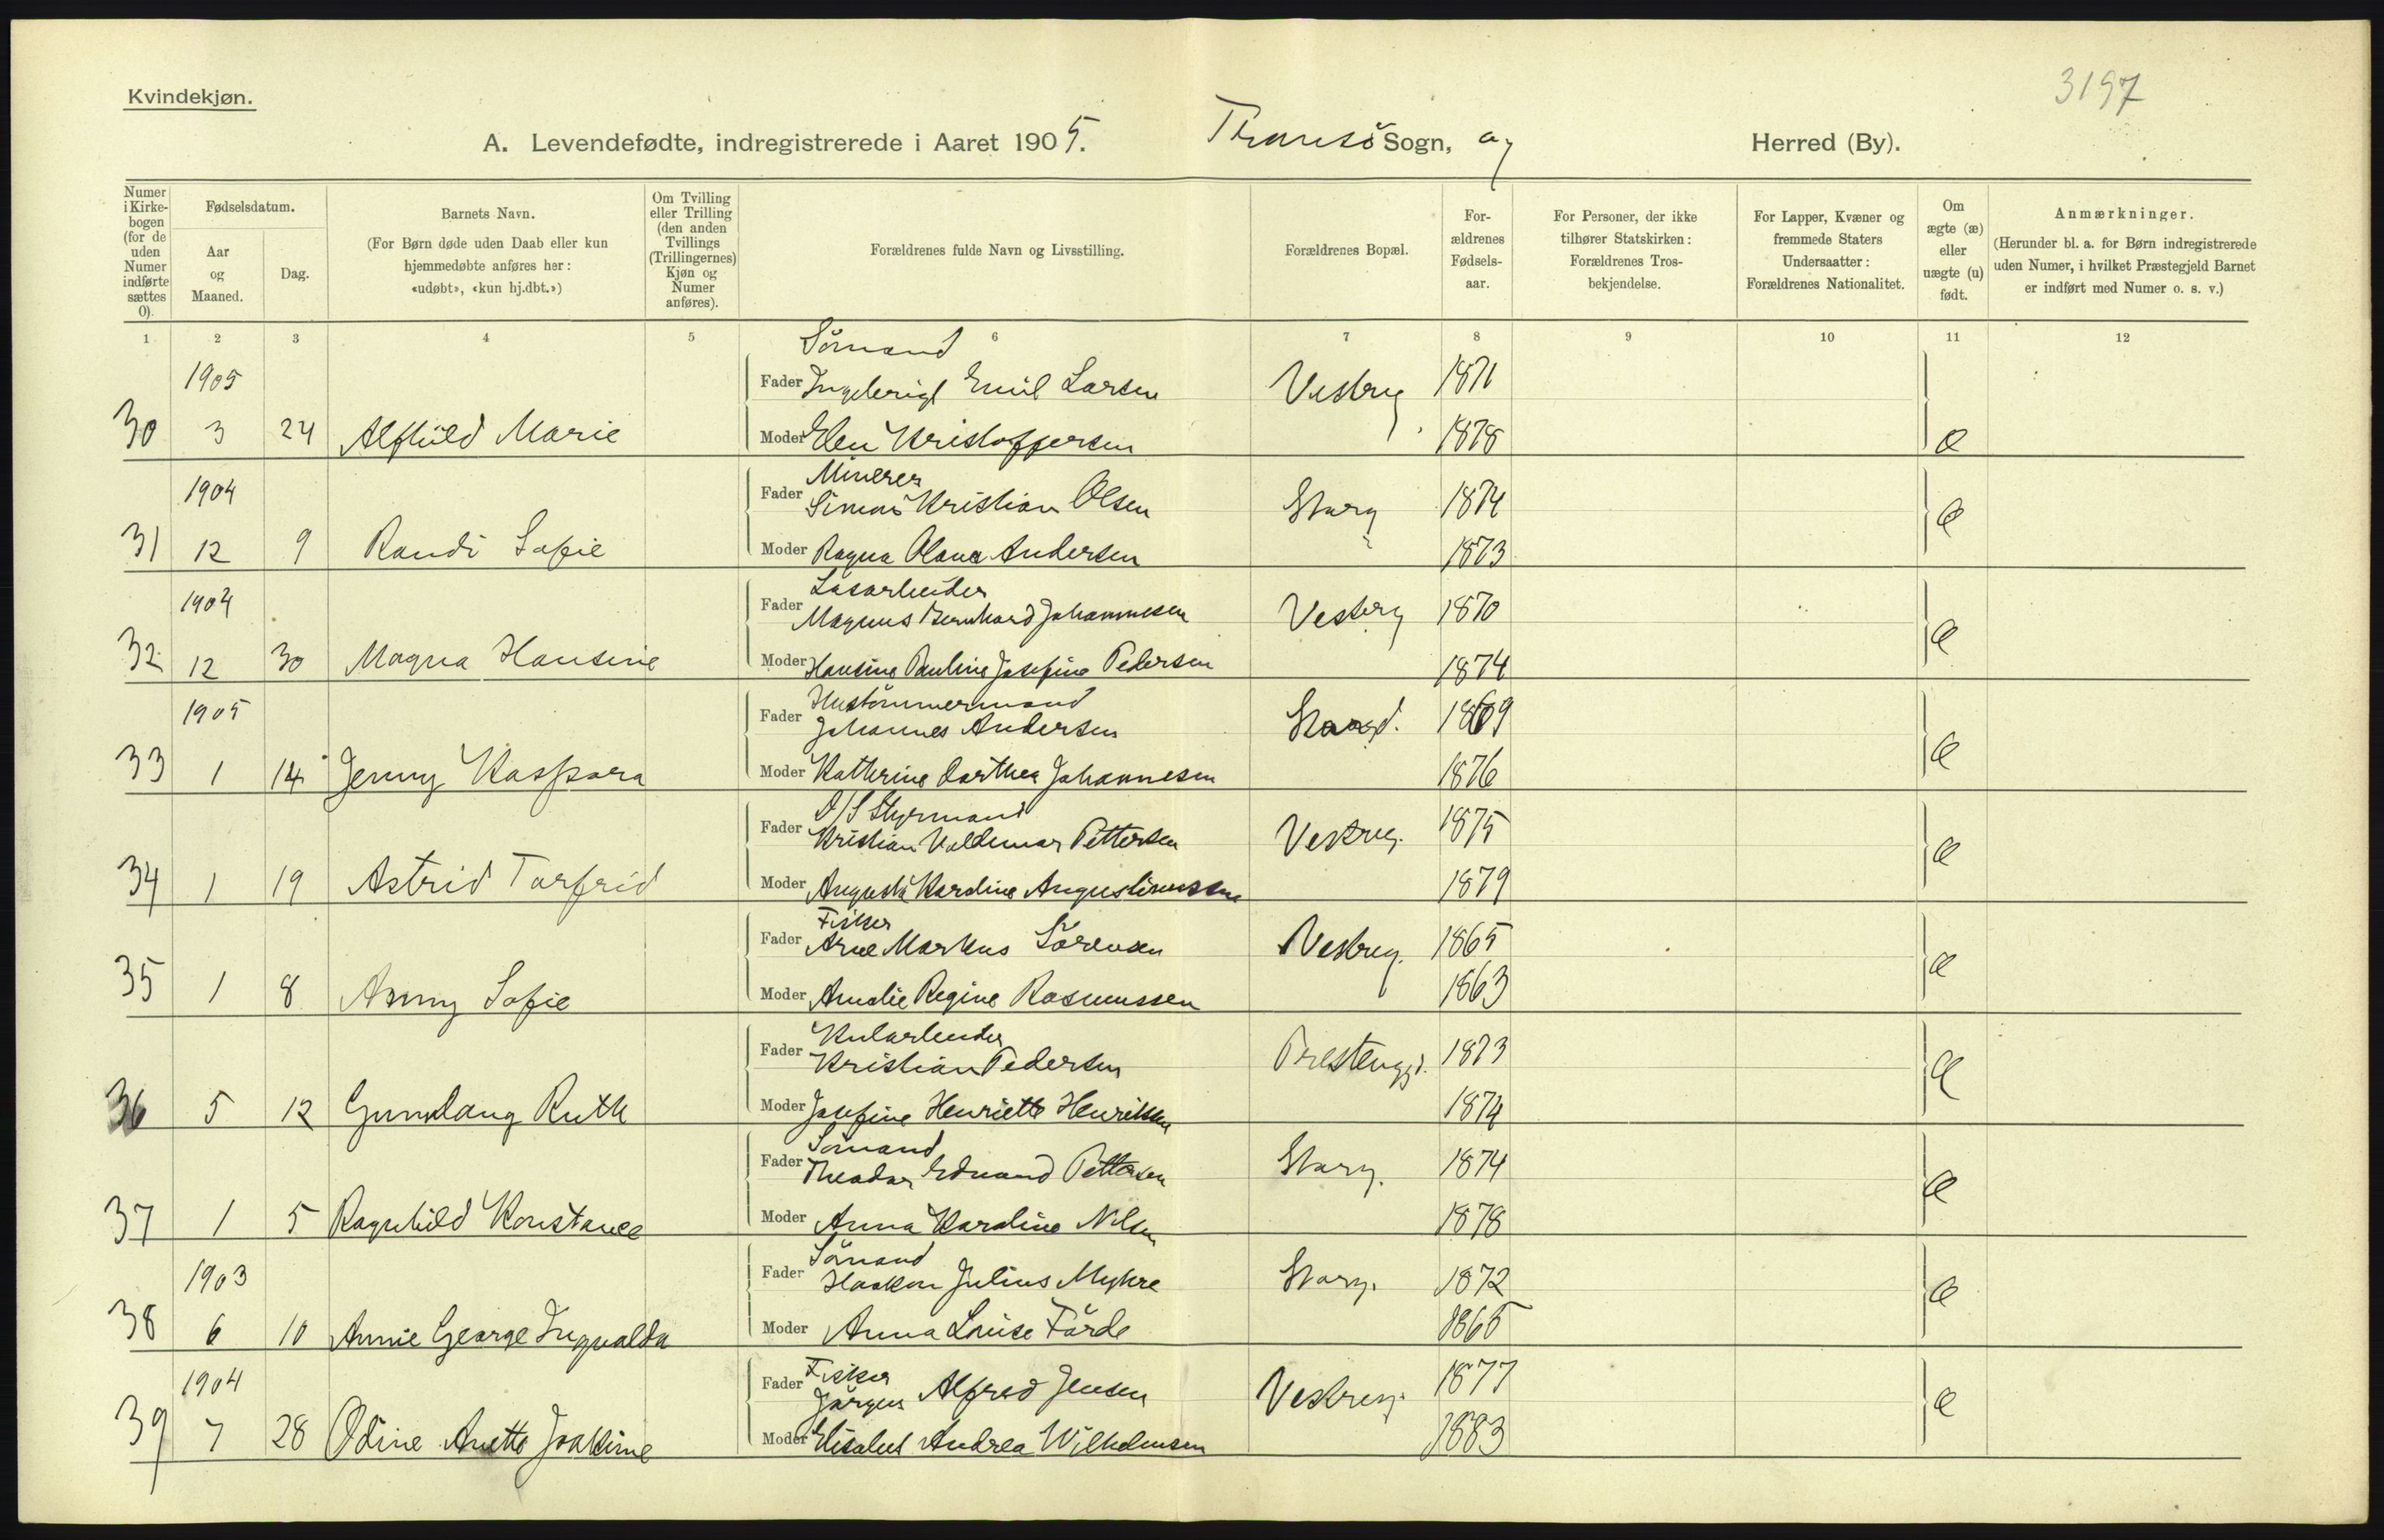 Kvindekjøn.
3197
A. Levendefødte, indregistrerede i Aaret 1905. Tromsö Sogn, og Herred (By).
Numer i Kirkebogen (for de uden Numer indførte sættes 0).
Fødselsdatum.
Aar og Maaned.
Dag.
Barnets Navn.
(For Børn døde uden Daab eller kun hjemmedøbte anføres her: «udøbt», «kun hj.dbt.»)
Om Tvilling eller Trilling (den anden Tvillings (Trillingernes) Kjøn og Numer anføres).
Forældrenes fulde Navn og Livsstilling.
Forældrenes Bopæl.
Forældrenes Fødselsaar.
For Personer, der ikke tilhører Statskirken: Forældrenes Trosbekjendelse.
For Lapper, Kvæner og fremmede Staters Undersaatter: Forældrenes Nationalitet.
Om ægte (æ) eller uægte (u) født.
Anmærkninger.
(Herunder bl. a. for Børn indregistrerede uden Numer, i hvilket Præstegjeld Barnet er indført med Numer o. s. v.)
1 2 3 4 5 6 7 8 9 10 11 12
Sömand
1905 Fader Ingebrigt Emil Larsen Vestreg 1871
30 3 24 Alfhild Marie Moder Elen Kristoffersen 1878 æ
Minerer
1904 Fader Simon Kristian Olsen Storg 1874 æ
31 12 9 Randi Sofie Moder Ragna Olava Andersen 1873
Løsarbeider
1904 Fader Magnus Bernhard Johannesen Vestreg 1870 æ
32 12 30 Magna Hansine Moder Hansine Pauline Josefine Pedersen 1874
Hustömmermand
1905 Fader Johannes Andersen 1869 æ
33 1 14 Jenny Kaspara Moder Kathrine Dorthea Johannesen 1876
D/S Styrmand
Fader Kristian Valdemar Pettersen Vestreg. 1875 æ
34 1 19 Astrid Torfrid Moder Augusta Karoline Augustinussen 1879
Fisker
Fader Arne Markus Sörensen Vestreg. 1865 æ
35 1 8 Anny Sofie Moder Amalie Regine Rasmussen 1863
Kularbeider
Fader Kristian Pedersen Prestengd. 1873 æ
36 5 12 Gunnlaug Ruth Moder Josefine Henriette Henriksen 1874
Sömand
Fader Theodor Eduard Pettersen Storg. 1874 æ
37 1 5 Ragnhild Konstance Moder Anna Karoline Nilsen 1878
Sömand
1903 Fader Haakon Julius Myhre Storg. 1872 æ
38 6 10 Annie George Ingvalda Moder Anna Louise Förde 1865
Fisker
1904 Fader Jörgen Alfred Jensen Vestreg. 1877 æ
39 7 28 Odine Anette Joakime Moder Elisabet Andrea Wilhelmsen 1883